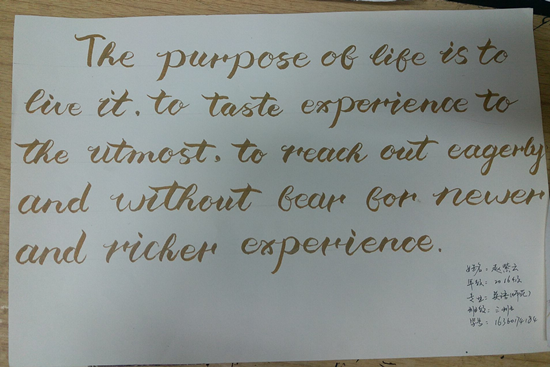 The purpose of life is to
live it. to taste experience to
the utmost, to reach out eagerly
and without fear for newer
and richer experience.
姓名：赵紫云
年级：2016级
专业：英语(师范)
班级：
学号：